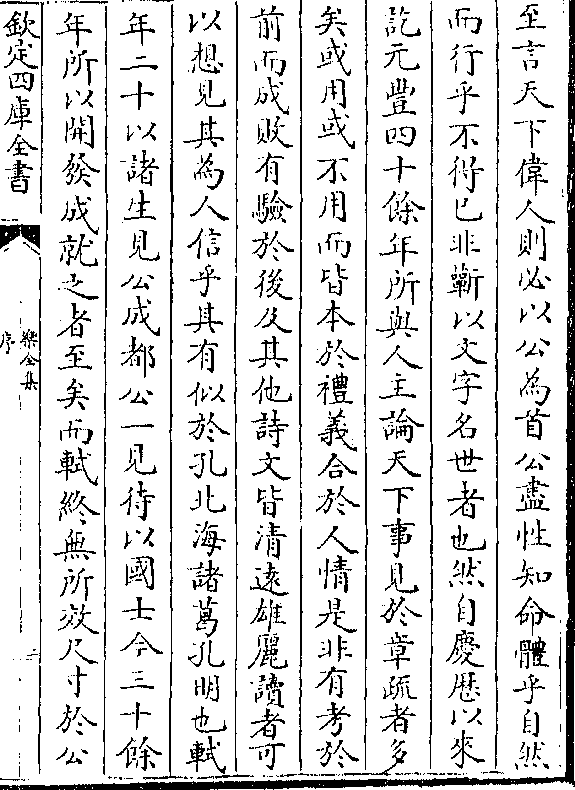 至言天下偉人則必以公為首公盡性知命體乎自然
而行乎不得已非蘄以文字名世者也然自慶厯以來
訖元豐四十餘年所與人主論天下事見於章疏者多
矣或用或不用而皆本於禮義合於人情是非有考於
前而成敗有驗於後及其他詩文皆清逺雄麗讀者可
以想見其為人信乎其有似於孔北海諸葛孔明也軾
年二十以諸生見公成都公一見待以國士今三十餘
年所以開發成就之者至矣而軾終無所效尺寸於公
欽定四庫全書
樂全集
序
二